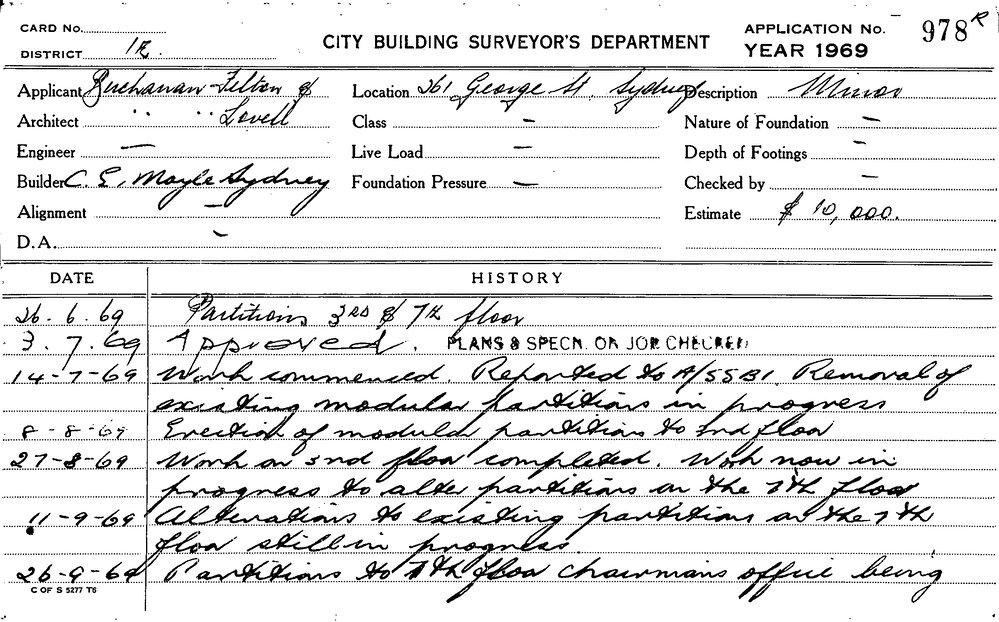 CARD No.
DISTRICT 1R.
CITY BUILDING SURVEYOR'S DEPARTMENT
APPLICATION No. 978 R
YEAR 1969
Applicant Buchanan Felton &
Location 361 George St. Sydney
Description Minor
Architect " " Lovell
Class –
Nature of Foundation –
Engineer –
Live Load –
Depth of Footings –
Builder C. E. Moyle Sydney
Foundation Pressure –
Checked by –
Alignment –
Estimate $ 10,000.
D.A. –
DATE HISTORY
26.6.69 Partitions 3rd & 7th floor
3.7.69 Approved. PLANS & SPECN. ON JOB CHECKED
14-7-69 Work commenced. Reported to A/SSBI. Removal of
existing modular partitions in progress
8-8-69 Erection of modular partitions to 3nd floor
27-8-69 Work on 3nd floor completed. Work now in
progress to alter partitions on the 7th floor
11-9-69 Alterations to existing partitions on the 7th
floor still in progress
26-9-69 Partitions to 7th floor chairmans office being
C OF S 5277 T6